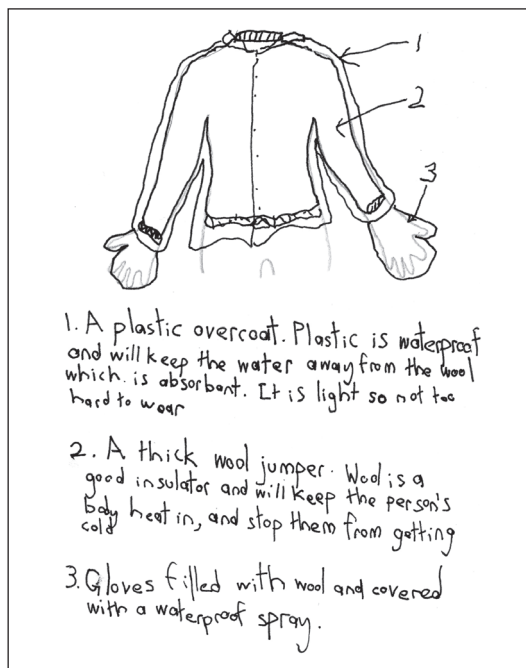 1
2
3
1. A plastic overcoat. Plastic is waterproof
and will keep the water away from the wool
which is absorbant. It is light so not too
hard to wear
2. A thick wool jumper. Wool is a
good insulator and will keep the person's
body heat in, and stop them from getting
cold
3. Gloves filled with wool and covered
with a waterproof spray.